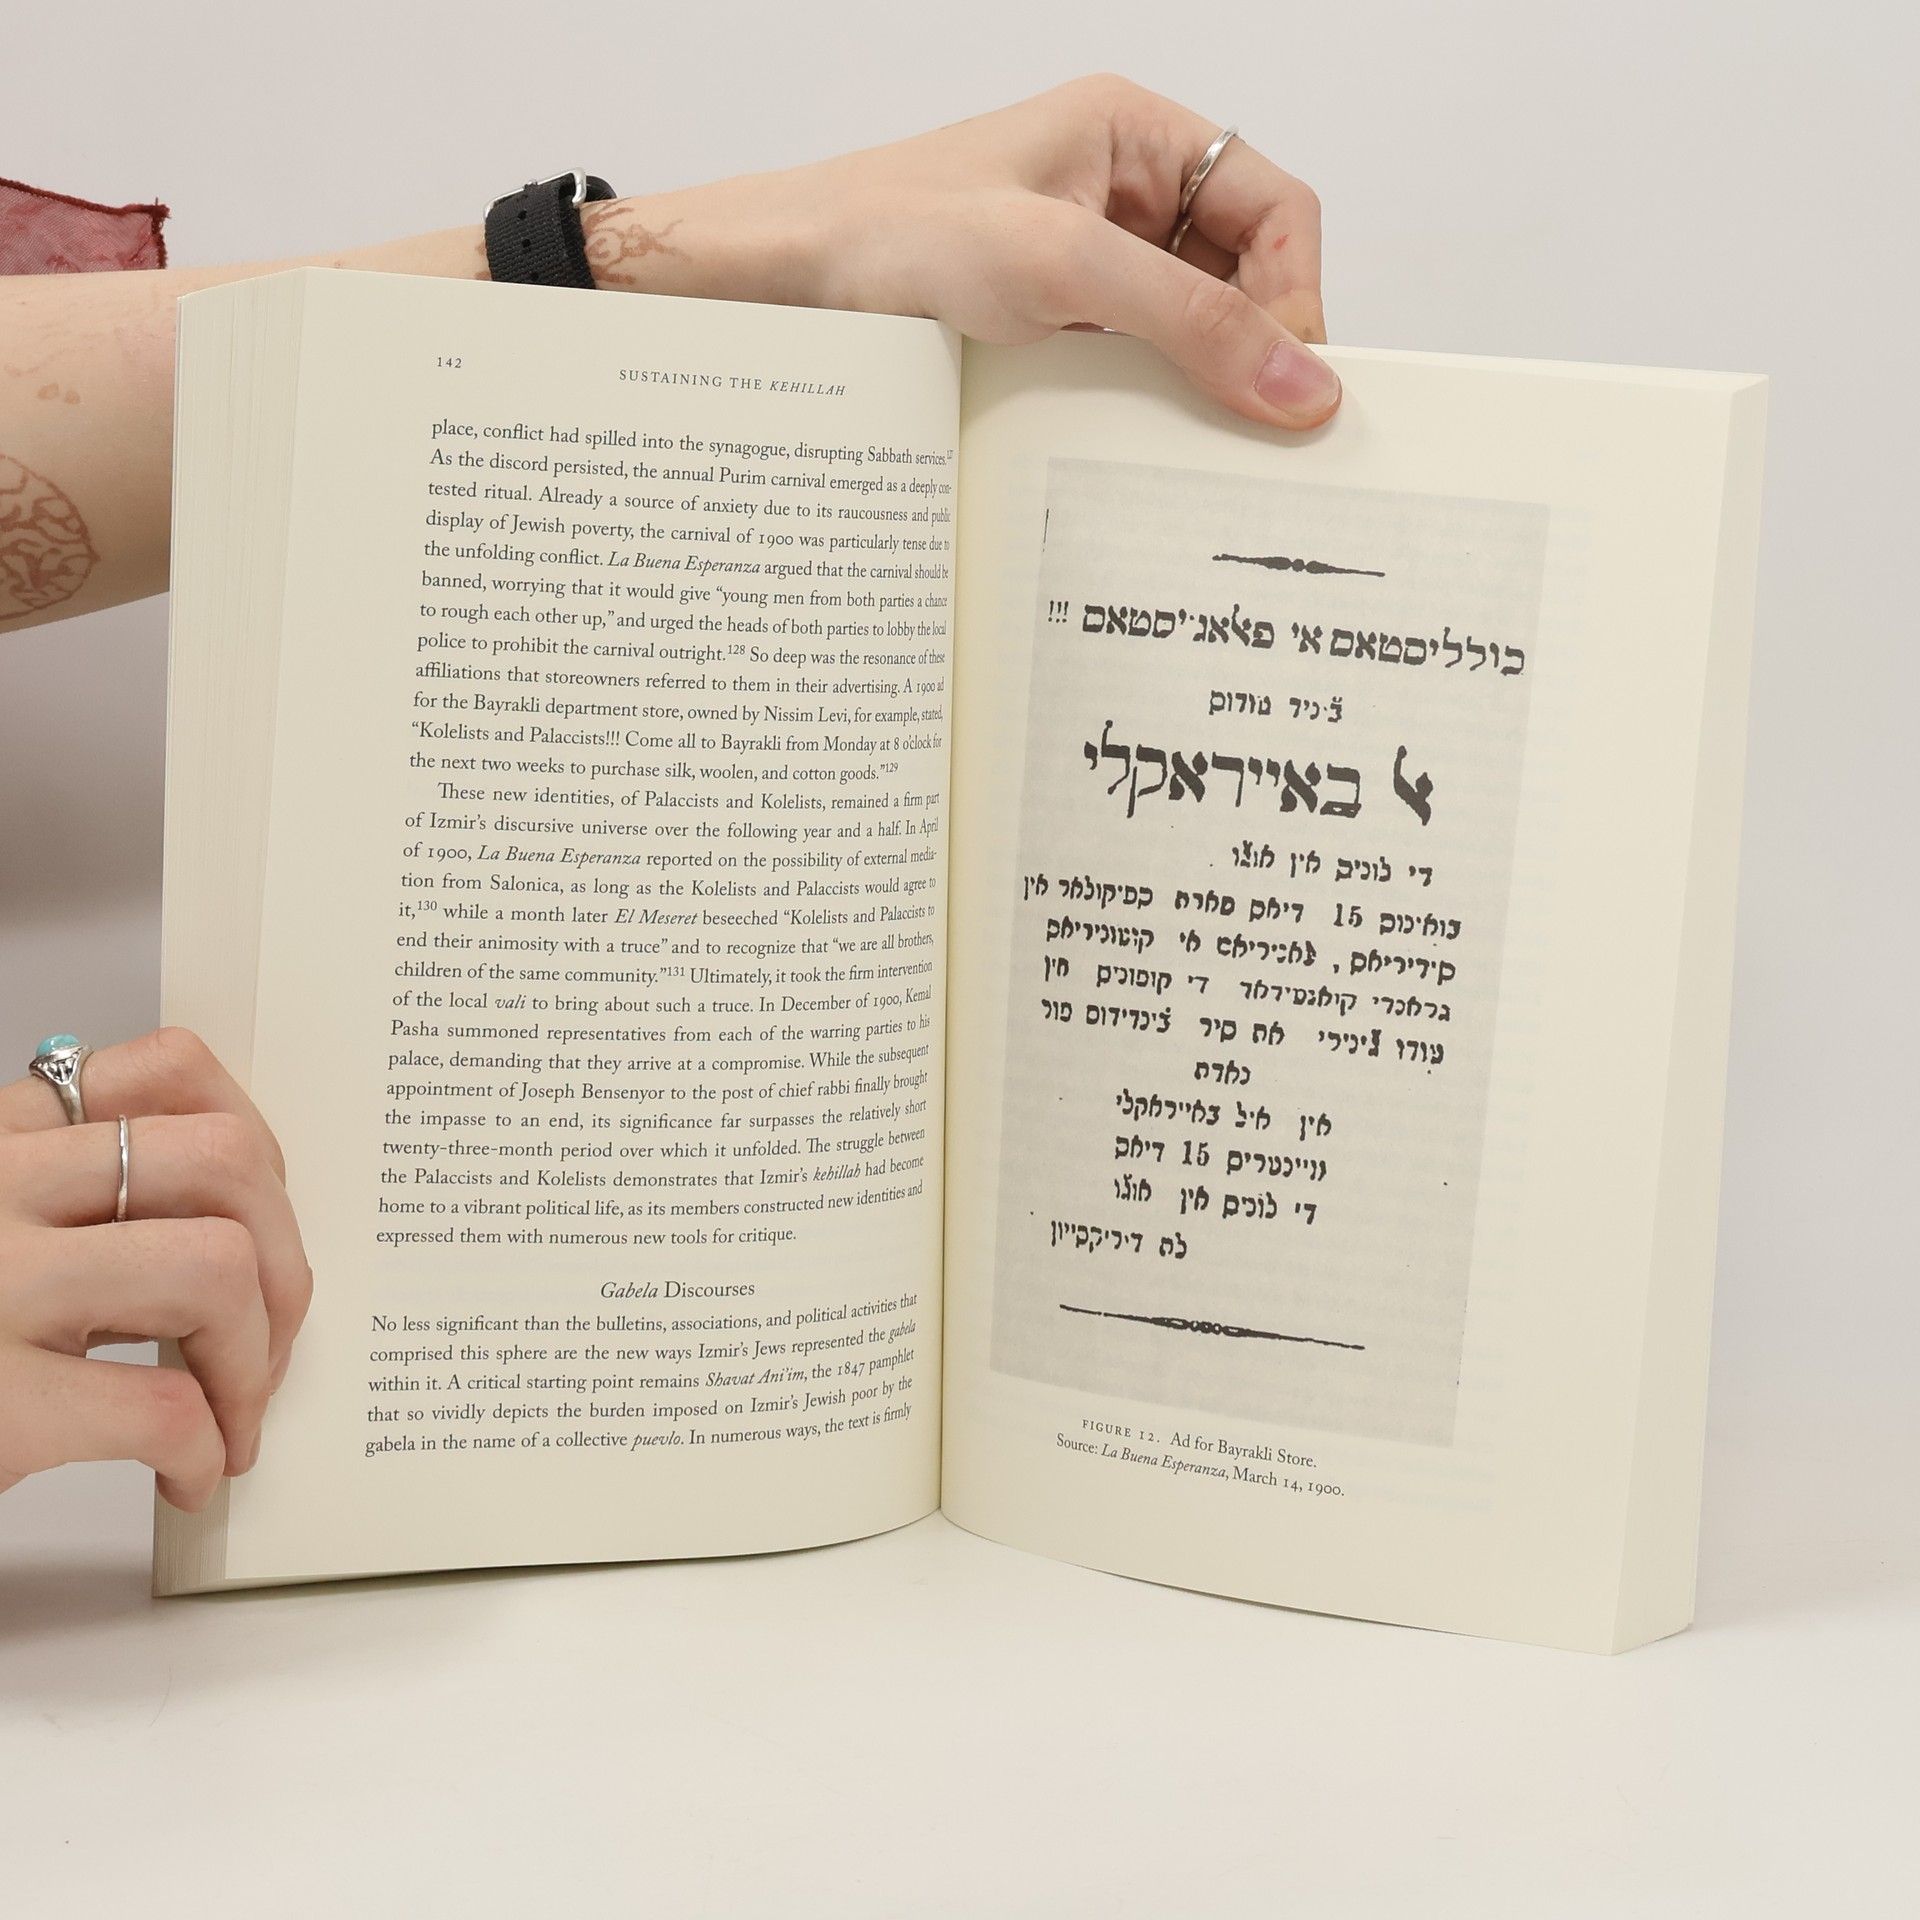 142
SUSTAINING THE KEHILLAH
place, conflict had spilled into the synagogue, disrupting Sabbath services.127
As the discord persisted, the annual Purim carnival emerged as a deeply con-
tested ritual. Already a source of anxiety due to its raucousness and public
display of Jewish poverty, the carnival of 1900 was particularly tense due to
the unfolding conflict. La Buena Esperanza argued that the carnival should be
banned, worrying that it would give “young men from both parties a chance
to rough each other up,” and urged the heads of both parties to lobby the local
police to prohibit the carnival outright.128 So deep was the resonance of these
affiliations that storeowners referred to them in their advertising. A 1900 ad
for the Bayrakli department store, owned by Nissim Levi, for example, stated,
“Kolelists and Palaccists!!! Come all to Bayrakli from Monday at 8 o’clock for
the next two weeks to purchase silk, woolen, and cotton goods.”129
These new identities, of Palaccists and Kolelists, remained a firm part
of Izmir’s discursive universe over the following year and a half. In April
of 1900, La Buena Esperanza reported on the possibility of external media-
tion from Salonica, as long as the Kolelists and Palaccists would agree to
it,130 while a month later El Meseret beseeched “Kolelists and Palaccists to
end their animosity with a truce” and to recognize that “we are all brothers,
children of the same community.”131 Ultimately, it took the firm intervention
of the local vali to bring about such a truce. In December of 1900, Kemal
Pasha summoned representatives from each of the warring parties to his
palace, demanding that they arrive at a compromise. While the subsequent
appointment of Joseph Bensenyor to the post of chief rabbi finally brought
the impasse to an end, its significance far surpasses the relatively short
twenty-three-month period over which it unfolded. The struggle between
the Palaccists and Kolelists demonstrates that Izmir’s kehillah had become
home to a vibrant political life, as its members constructed new identities and
expressed them with numerous new tools for critique.
Gabela Discourses
No less significant than the bulletins, associations, and political activities that
comprised this sphere are the new ways Izmir’s Jews represented the gabela
within it. A critical starting point remains Shavat Ani’im, the 1847 pamphlet
that so vividly depicts the burden imposed on Izmir’s Jewish poor by the
gabela in the name of a collective puevlo. In numerous ways, the text is firmly
כולליסטאס אי פאלאג׳יסטאס !!!
ב׳ניד טודוס
אל באייראקלי
די לוניס אין אוג׳ו
בואינוס 15 דיאס פארה
סידיריאס, לאניריאס אי קוטוניריאס
גראנדי קואנטידאד די קופוניס אין
טודו ג׳ינירי אה סיר ב׳ינדידוס פור
נאדה
אין איל באייראקלי
סוייכטריס 15 דיאס
די לוניס אין אוג׳ו
לה דיריקסייון
FIGURE 12. Ad for Bayrakli Store.
Source: La Buena Esperanza, March 14, 1900.